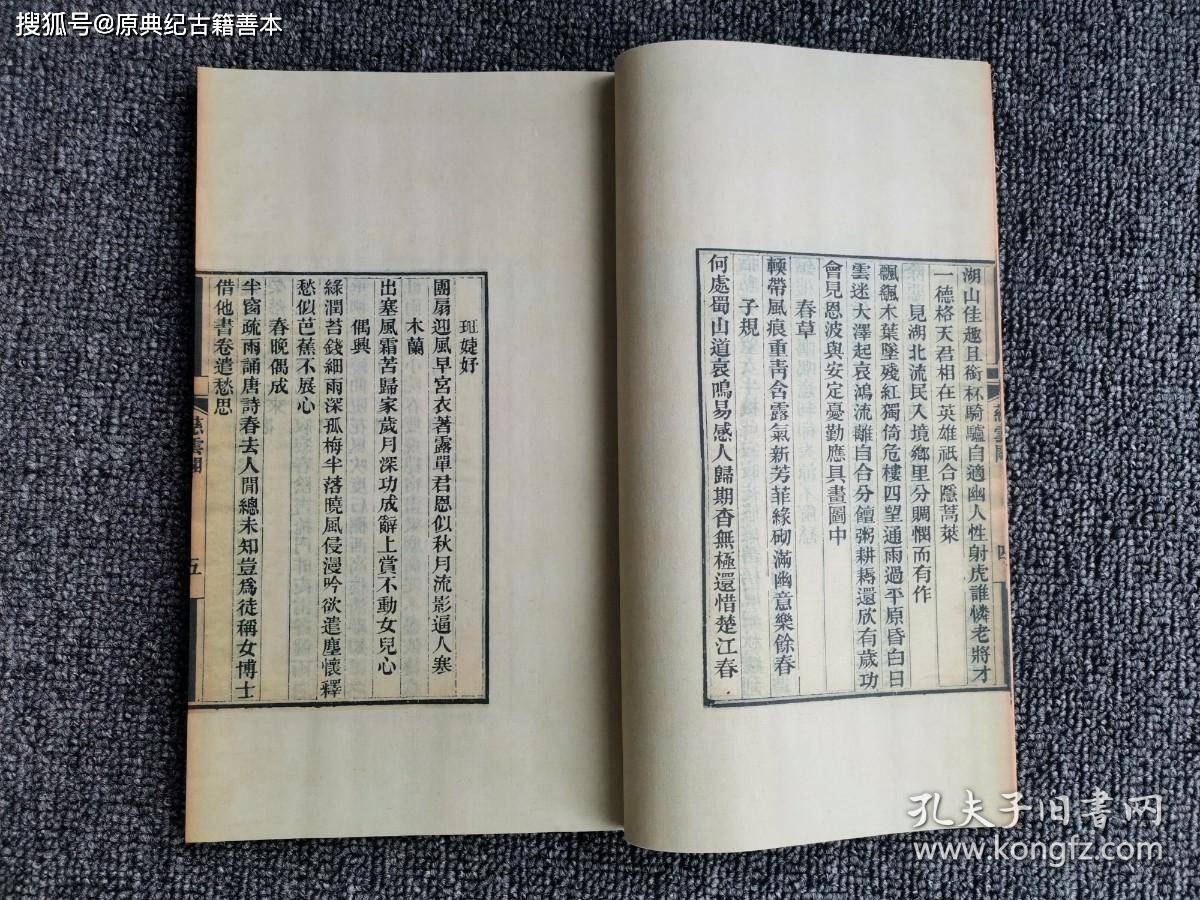 搜狐号@原典纪古籍善本
湖山佳趣且銜杯騎驢自適幽人性射虎誰憐老將才
一德格天君相在英雄祇合隱蒿萊
見湖北流民入境鄉里分賙憫而有作
飄飄木葉墜殘紅獨倚危樓四望通雨過平原昏白日
雲迷大澤起哀鴻流離自合分饘粥耕耨還欣有歲功
會見恩波與安定憂勤應具畫圖中
春草
輭帶風痕重青含露氣新芳菲緣砌滿幽意樂餘春
子規
何處蜀山道哀鳴易感人歸期杳無極還惜楚江春
慈雲閣
四
班婕妤
團扇迎風早宮衣著露單君恩似秋月流影逼人寒
木蘭
出塞風霜苦歸家歲月深功成辭上賞不動女兒心
偶興
綠潤苔錢細雨深孤梅半落曉風侵漫吟欲遣塵懷釋
愁似芭蕉不展心
春晚偶成
半窗疏雨誦唐詩春去人閒總未知豈爲徒稱女博士
借他書卷遣愁思
慈雲閣
五
孔夫子旧书网
www.kongfz.com